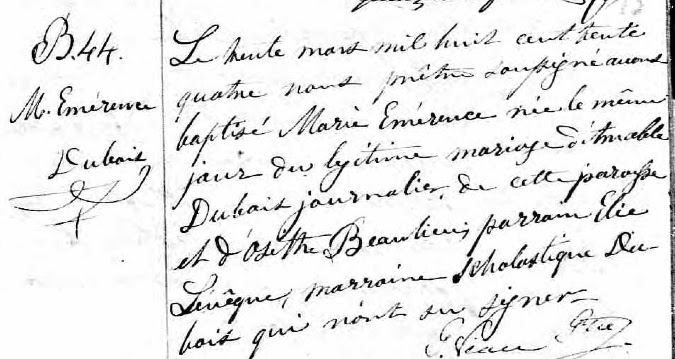 B.44.
M. Emérence
Dubois
Le trente mars mil huit cent trente
quatre nous prêtre soussigné avons
baptisé Marie Emérence née le même
jour du légitime mariage d'Amable
Dubois journalier, de cette paroisse
et d'Osithe Beaulieu; parrain Elie
Levêque, marraine Scholastique Du-
bois qui n'ont su signer
Ptre